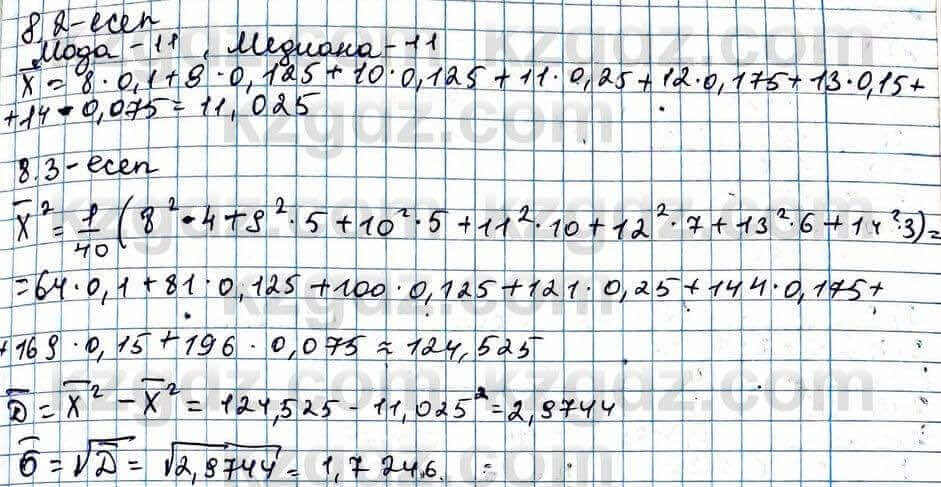 8.2-есеп
Мода - 11, Медиана - 11
X̄ = 8·0,1+9·0,125+10·0,125+11·0,25+12·0,175+13·0,15+
+14·0,075=11,025
8.3-есеп
X̄² = 1/40 (8²·4+9²·5+10²·5+11²·10+12²·7+13²·6+14²·3)=
=64·0,1+81·0,125+100·0,125+121·0,25+144·0,175+
+169·0,15+196·0,075≈124,525
D̄ = X̄² - X̄² = 124,525-11,025²=2,9744
σ̄ = √D̄ = √2,9744 = 1,7246.
kzgdz.com